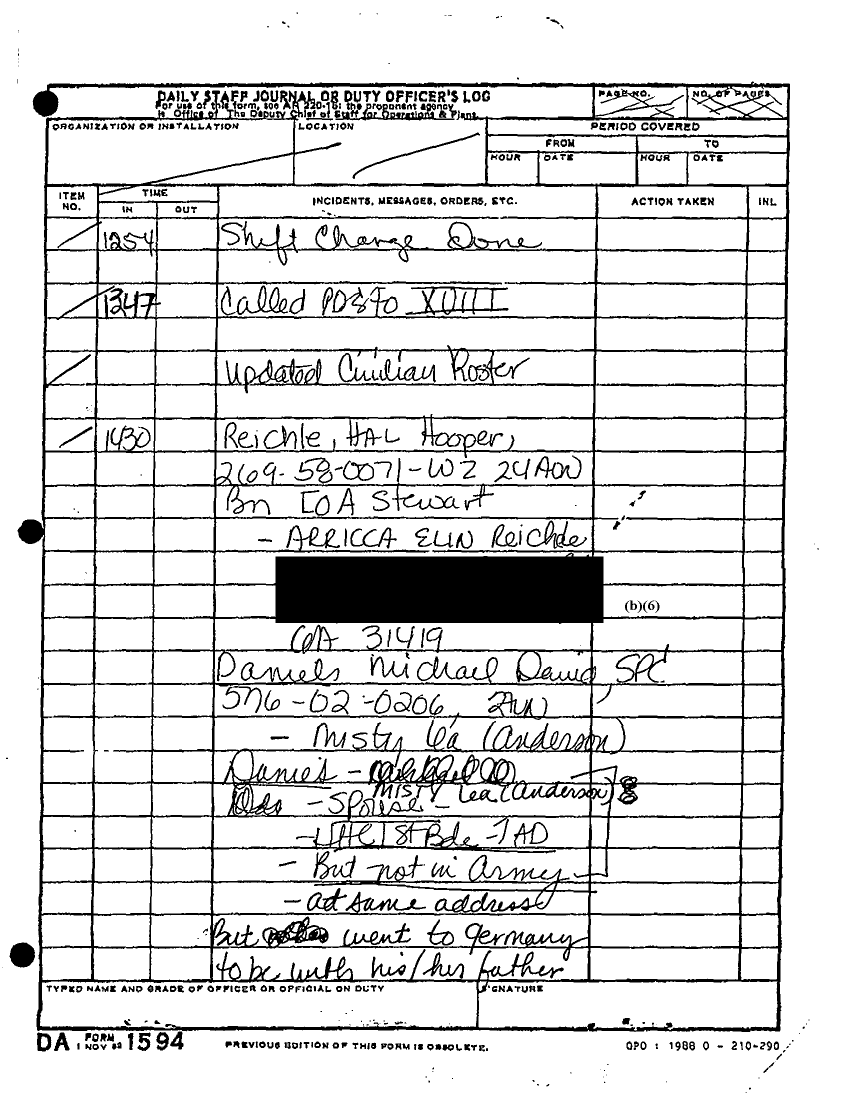 DAILY STAFF JOURNAL OR DUTY OFFICER'S LOG
For use of this form, see AR 220-15; the proponent agency
is Office of The Deputy Chief of Staff for Operations & Plans.
PAGE NO. NO. OF PAGES
ORGANIZATION OR INSTALLATION LOCATION PERIOD COVERED
FROM TO
HOUR DATE HOUR DATE
ITEM NO. TIME INCIDENTS, MESSAGES, ORDERS, ETC. ACTION TAKEN INL
IN OUT
1254 Shift Change Done
1347 Called XVIII
Updated Civilian Roster
1430 Reichle, HAL Hooper,
269-58-0071-W2 24AVN
Bn Stewart
- ARRICCA ELIN Reichle
(b)(6)
GA 31419
Daniels Michael David, SPC
576-02-0206,
- Misty Lea (Anderson)
Daniels -
- Spouse - MISTY Lea (Anderson)
- HHC 1st Bde 1 AD
- But not in Army
- at same address
But went to Germany
to be with his/her father
TYPED NAME AND GRADE OF OFFICER OR OFFICIAL ON DUTY SIGNATURE
DA FORM 1 NOV 62 1594 PREVIOUS EDITION OF THIS FORM IS OBSOLETE. GPO : 1988 O - 210-290